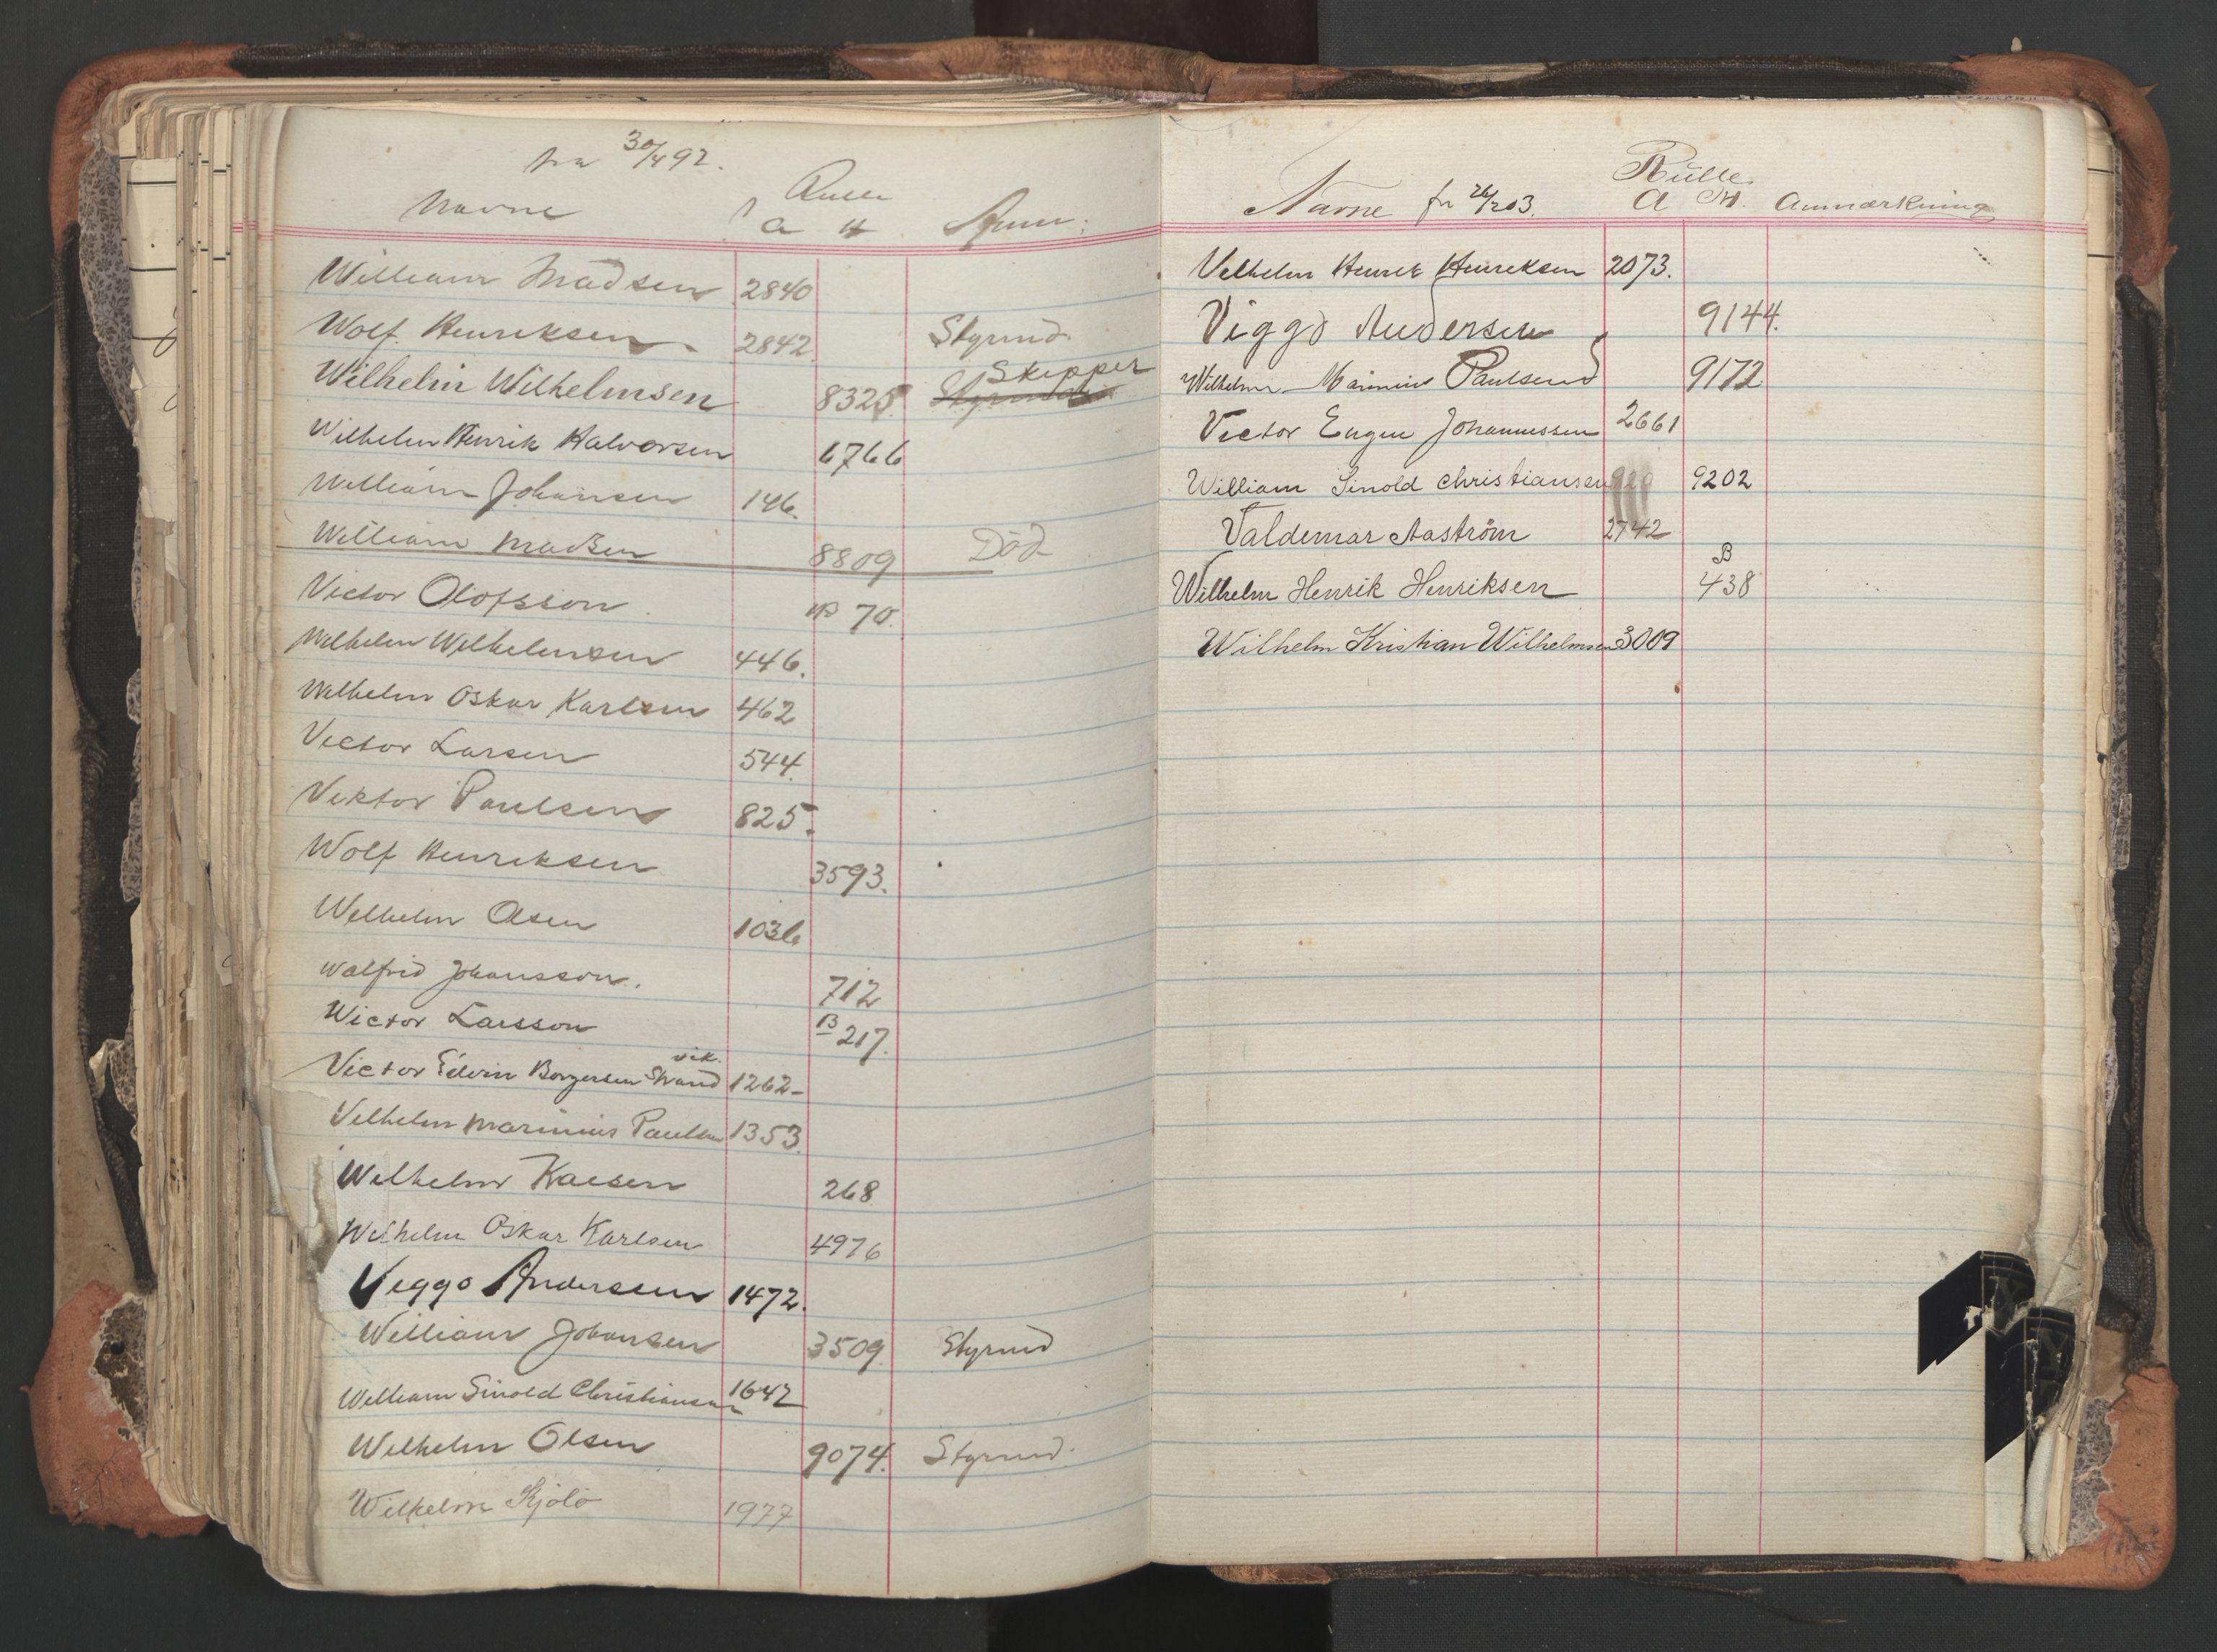 fra 30/4 92.
Rulle
Navne a H Anm:
William Madsen 2840
Wolf Henriksen 2842 Styrmd.
Skipper
Wilhelm Wilhelmsen 8325
Wilhelm Henrik Halvorsen 6766
William Johansen 146.
William Madsen 8809 Död
Victor Olofsson B 70.
Wilhelm Wilhelmsen 446.
Wilhelm Oskar Karlsen 462
Victor Larsen 544.
Viktor Paulsen 825.
Wolf Henriksen 3593.
Wilhelm Olsen 1036
Walfrid Johansson. 712
Wictor Larsson B 217.
vik.
Victor Edvin Borgersen Strand 1262-
Vilhelm Marinius Paulsen 1353.
Wilhelm 268
Wilhelm Oskar Karlsen 4976
Viggo Anderssen 1472.
William Johansen 3509 Styrmd
William Sinold Christiansen 1642
Wilhelm Olsen 9074. Styrmd.
Wilhelm Kjölö 1977
Rulle
Navne fr 26/2 03. A H. Anmærkning
Vilhelm Henrik Henriksen 2073.
Viggo Andersen 9144.
Wilhelm Marinius Paulsen 9172
Victor Eugen Johannessen 2661
William Sinold Christiansen 9202
Valdemar Aaström 2742
B
Wilhelm Henrik Henriksen 438
Wilhelm Kristian Wilhelmsen 3009